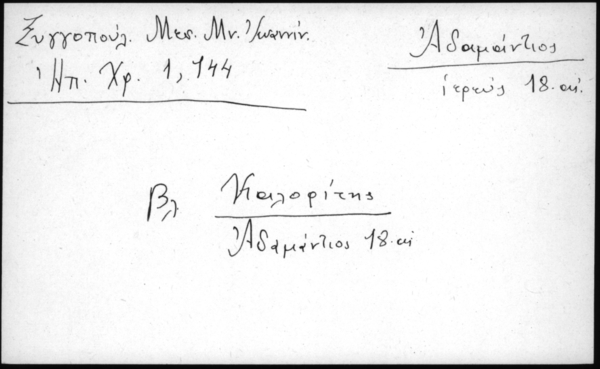 Ξυγγοπούλ. Μεσ. Μν. Ἰωαννίν.
Ἠπ. Χρ. 1, 144
Ἀδαμάντιος
ἱερεύς 18. αἰ.
Βλ Καλορίτης
Ἀδαμάντιος 18. αἰ